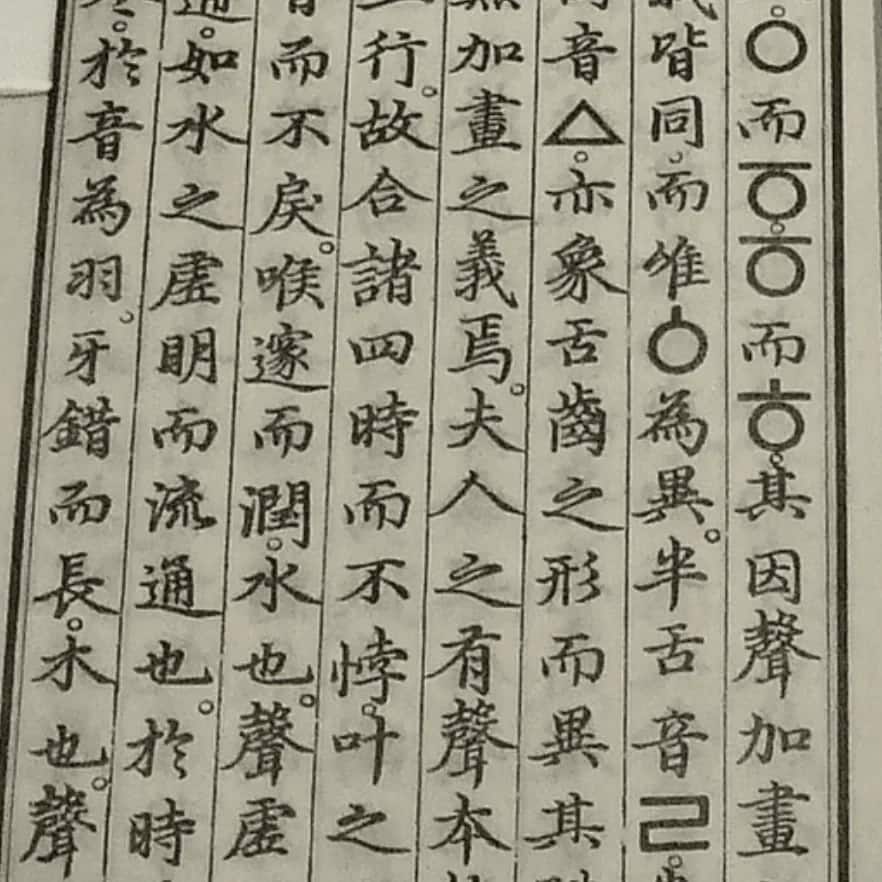 ㅇ而ㆆ。ㆆ而ㅎ。其因聲加畫
皆同。而唯ㆁ為異。半舌音ㄹ。
音ㅿ。亦象舌齒之形而異其
無加畫之義焉。夫人之有聲本
行。故合諸四時而不悖。叶之
而不戾。喉邃而潤。水也。聲虛
通。如水之虛明而流通也。於時
於音為羽。牙錯而長。木也。聲